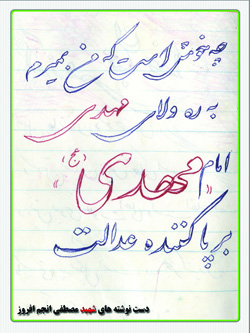 چه خوش است که من بمیرم
به ره ولای مهدی
امام «مهدی» (عج)
برپا کننده عدالت
دست نوشته های شهید مصطفی انجم افروز